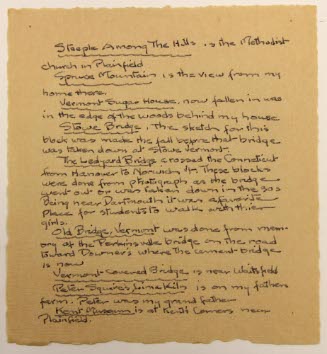 Steeple Among The Hills is the Methodist
church in Plainfield
Spruce Mountain is the view from my
home there
Vermont Sugar House, now fallen in was
in the edge of the woods behind my house
Stowe Bridge, The sketch for this
block was made the fall before that bridge
was taken down at Stowe Vermont.
The Ledyard Bridge crossed the Connecticut
from Hanover to Norwich Vt. These blocks
were done from photograph as the bridge
went out or was taken down in the 30s
Being near Dartmouth it was a favorite
place for students to walk with thier
girls.
Old Bridge, Vermont was done from mem-
ory at the Perkinsville bridge on the road
toward Downer's where the cement bridge
is now
Vermont Covered Bridge is near Waitsfield
Peter Squires Lime Kiln is on my fathers
farm. Peter was my grand father
Kent Museum is at Kents Corners near
Plainfield.